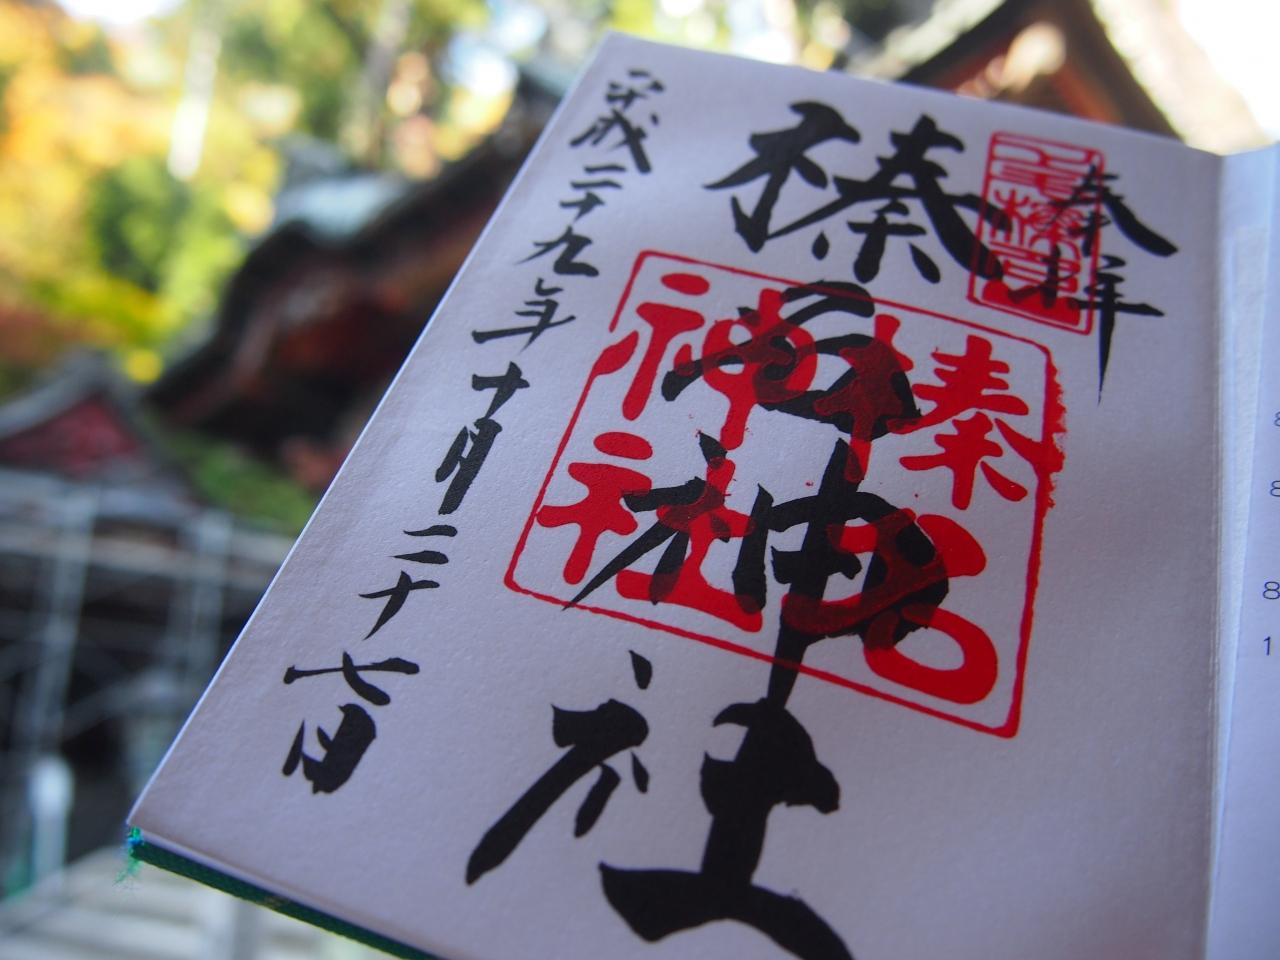 奉拝
榛名神社
榛名
神社
平成二十九年十月二十七日